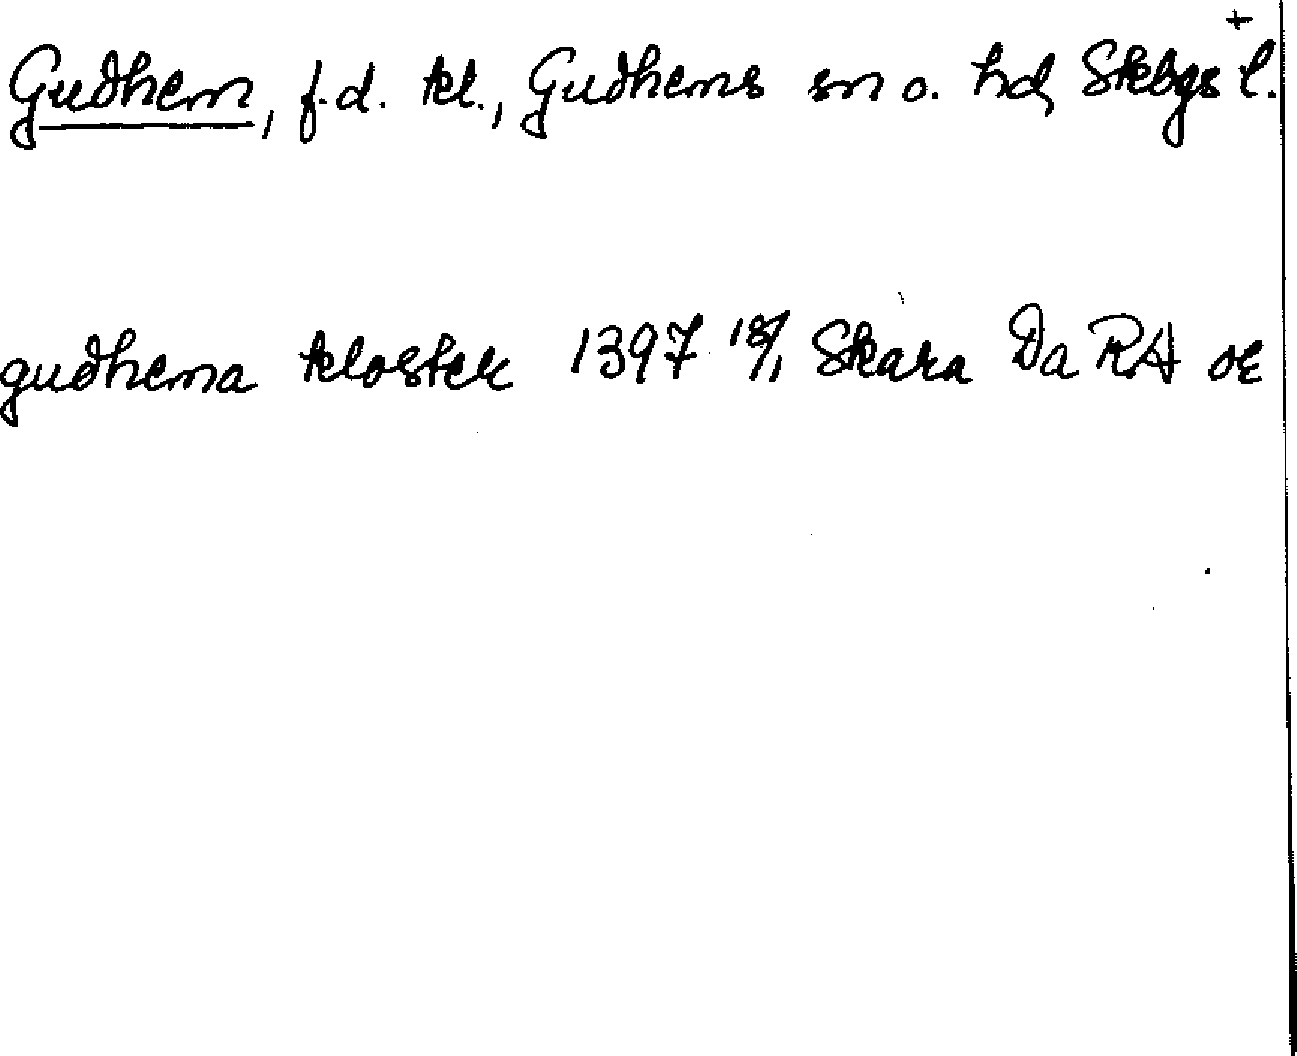 +
Gudhem, f.d. kl., Gudhems sn o. hd, Skbgs l.
gudhema kloster 1397 18/1 Skara Da RA or